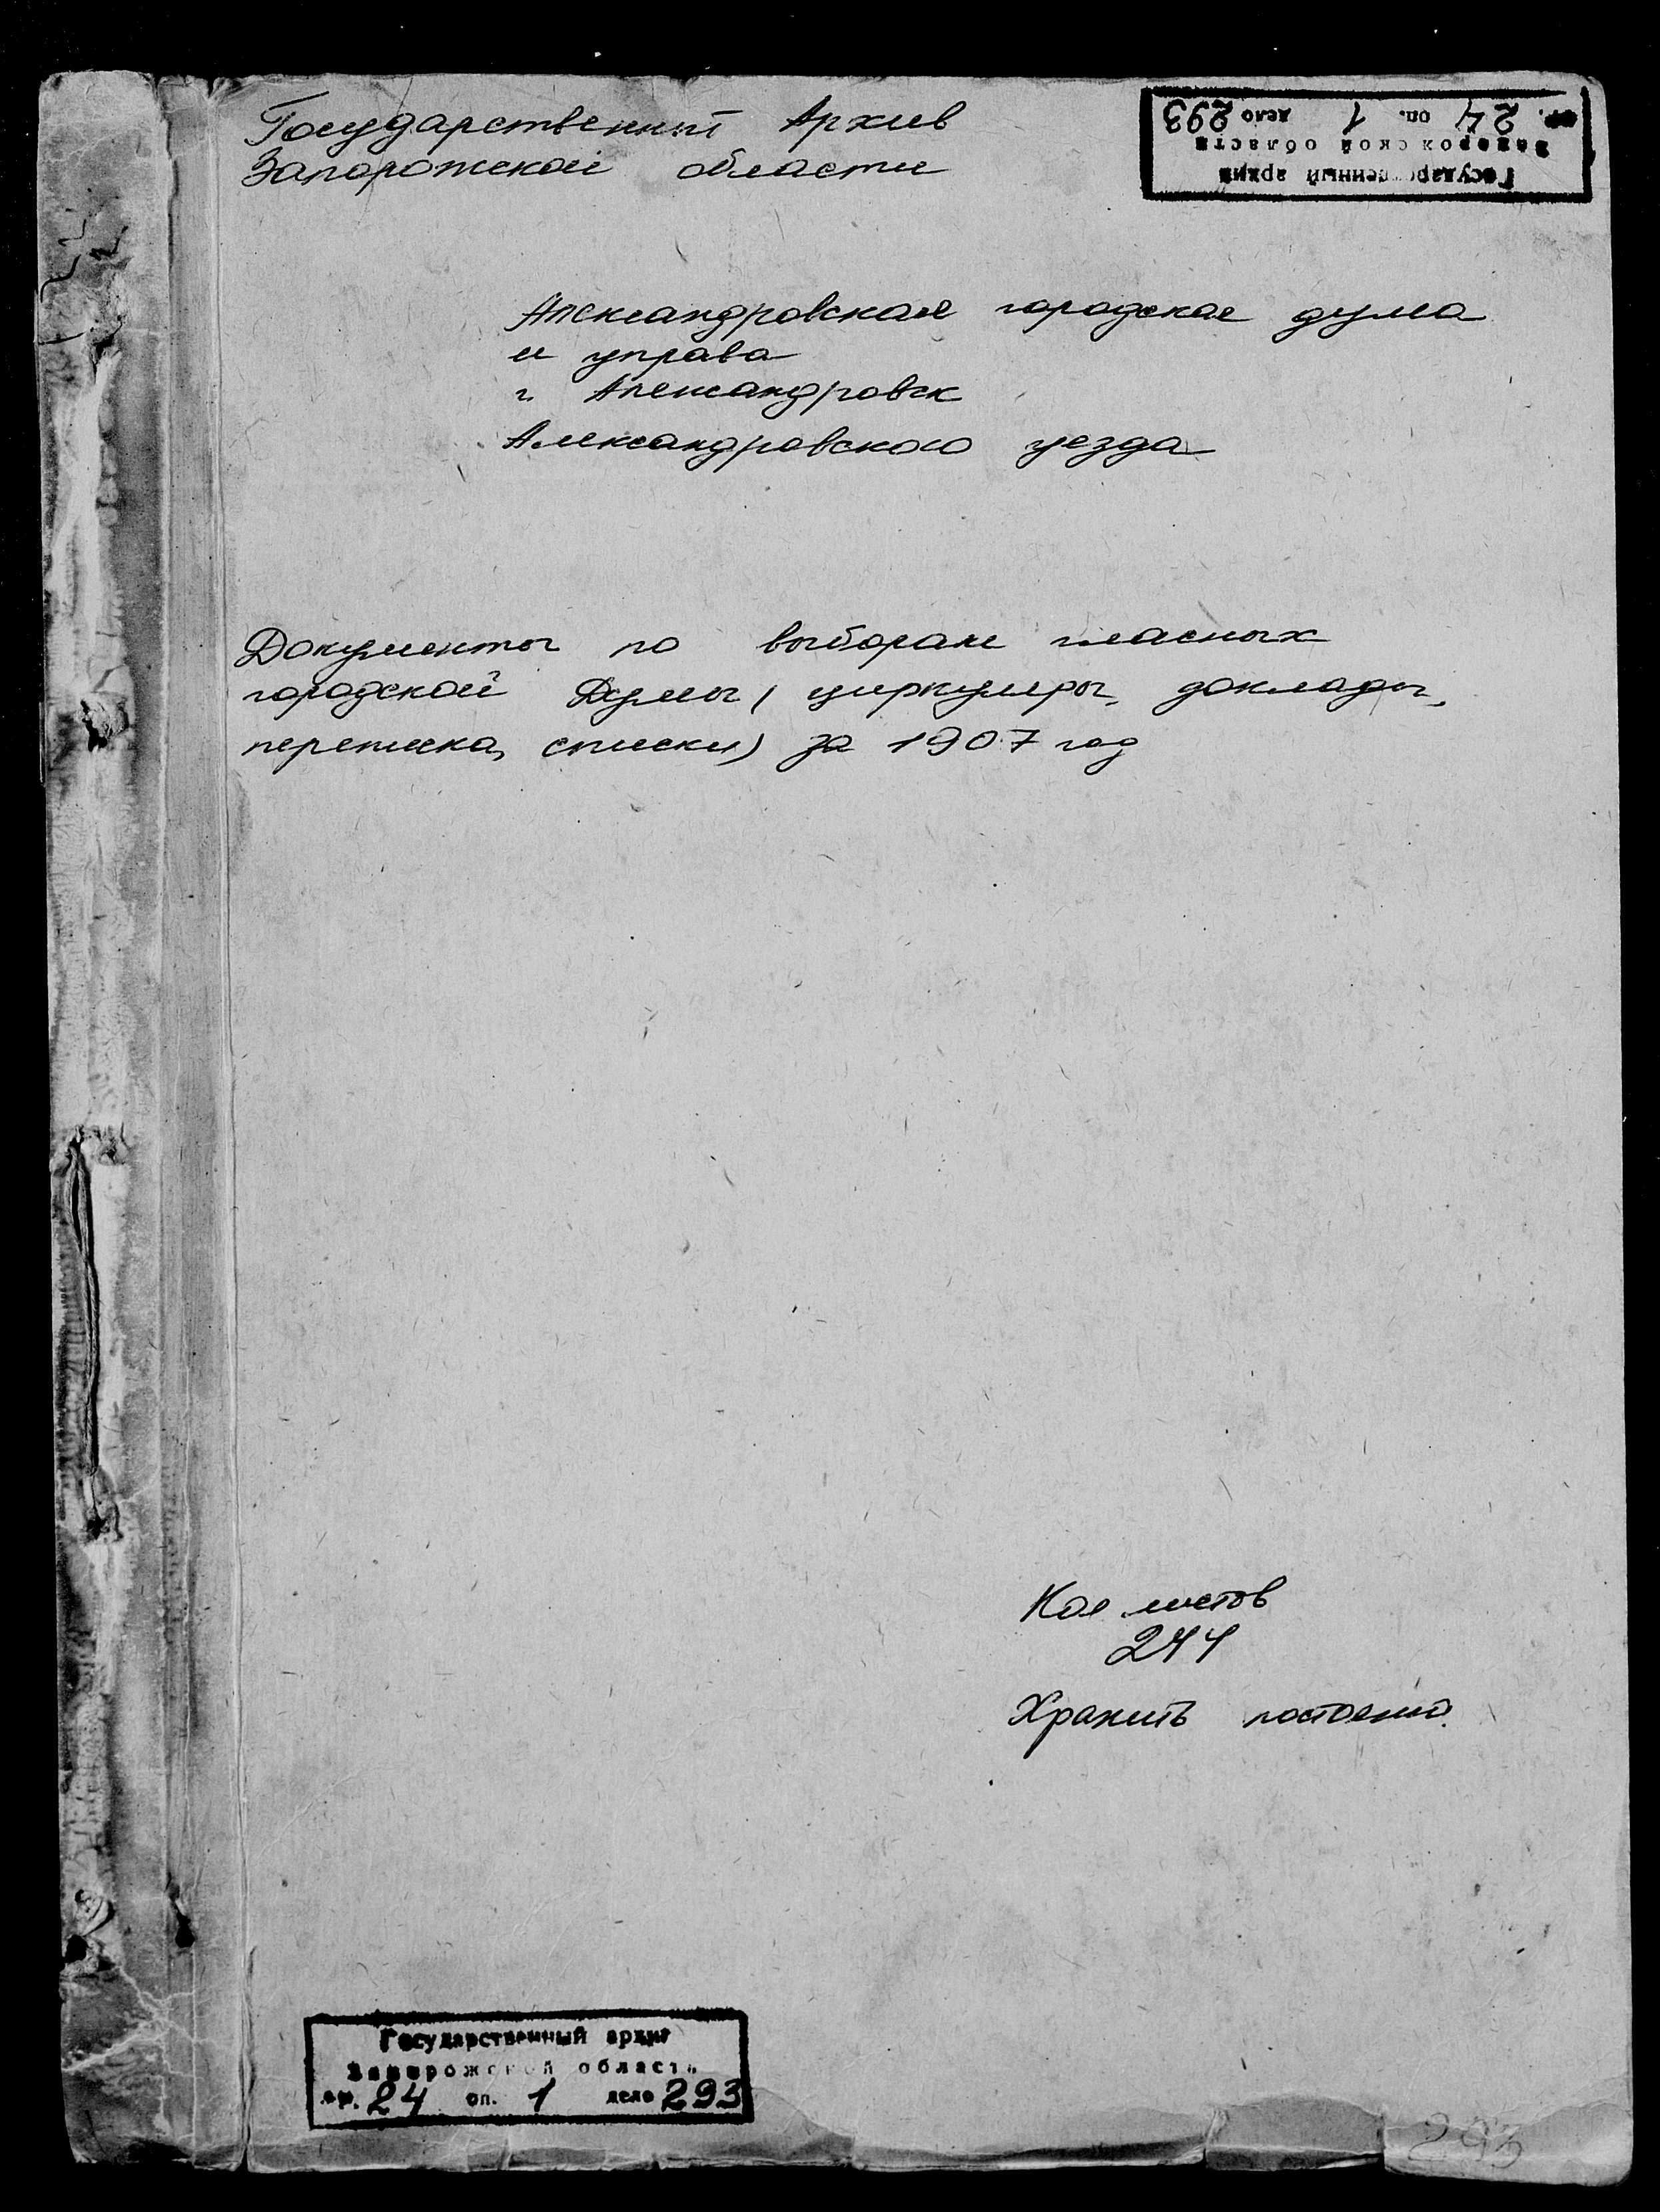 Государственный Архив
Запорожской области
Государственный архив
Запорожской области
ф. 24 оп. 1 дело 293
Александровская городская дума
и управа
г. Александровск
Александровского уезда
Документы по выборам гласных
городской Думы (циркуляры, доклады,
переписка, списки) за 1907 год
Кол. листов
244
Хранить
Государственный архив
Запорожской области
ф. 24 оп. 1 дело 293
293